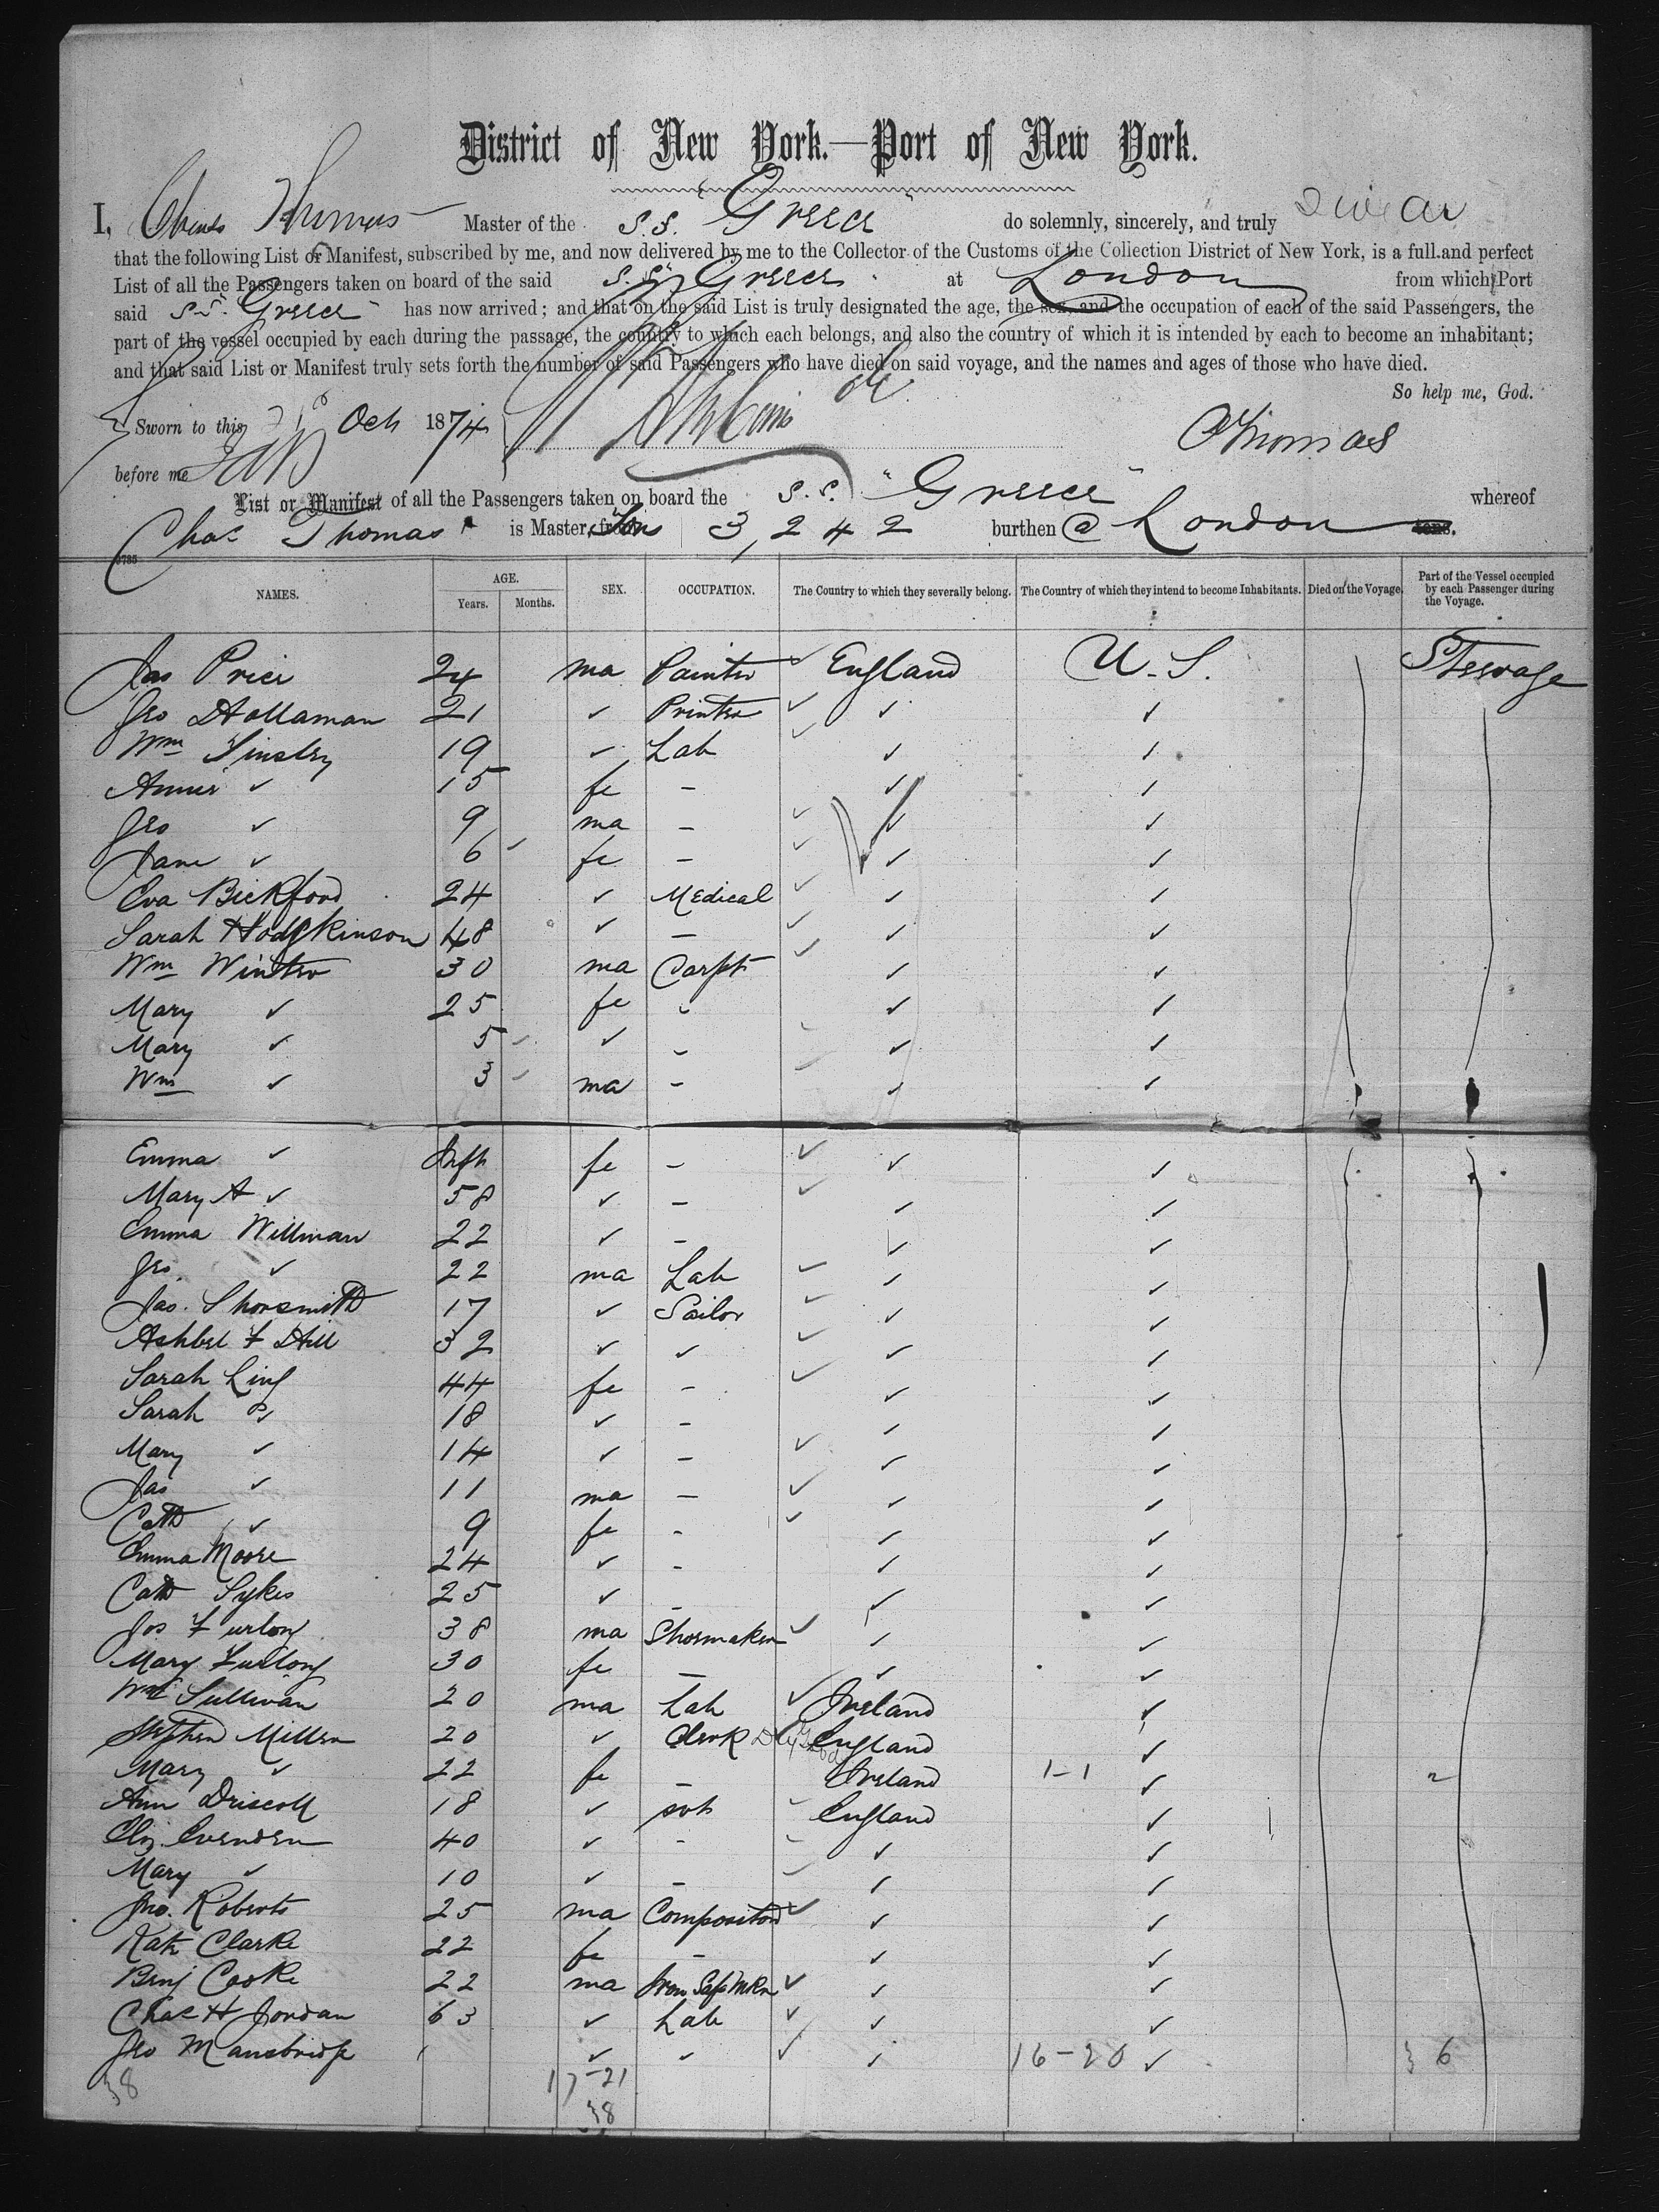 District of New York.—Port of New York.
I, Charles Thomas Master of the S.S. "Greece" do solemnly, sincerely, and truly swear
that the following List or Manifest, subscribed by me, and now delivered by me to the Collector of the Customs of the Collection District of New York, is a full and perfect
List of all the Passengers taken on board of the said S.S. "Greece" at London from which Port
said S.S. "Greece" has now arrived; and that on the said List is truly designated the age, the sex, and the occupation of each of the said Passengers, the
part of the vessel occupied by each during the passage, the country to which each belongs, and also the country of which it is intended by each to become an inhabitant;
and that said List or Manifest truly sets forth the number of said Passengers who have died on said voyage, and the names and ages of those who have died.
So help me, God.
Sworn to this Oct 1874
CThomas
before me
List or Manifest of all the Passengers taken on board the S.S. "Greece" whereof
Chas Thomas is Master, from Tons 3,242 burthen @ London tons.
NAMES. AGE. Years. Months. SEX. OCCUPATION. The Country to which they severally belong. The Country of which they intend to become Inhabitants. Died on the Voyage. Part of the Vessel occupied by each Passenger during the Voyage.
Jas Price 24 ma Painter ✓ England U.S. Steerage
Geo Hollaman 21 ✓ Printer ✓ ✓ ✓
Wm Tinsley 19 ✓ Lab ✓ ✓ ✓
Annie ✓ 15 fe - ✓ ✓
Geo ✓ 9 ma - ✓ ✓ ✓
Jane ✓ 6 fe - ✓ ✓ ✓
Eva Bickford 24 ✓ Medical ✓ ✓ ✓
Sarah Hodgkinson 48 ✓ - ✓ ✓ ✓
Wm Winter 30 ma Carpt ✓ ✓ ✓
Mary ✓ 25 fe - ✓ ✓
Mary ✓ 5 ✓ - ✓ ✓
Wm ✓ 3 ma - ✓ ✓
Emma ✓ Inft fe - ✓ ✓ ✓
Mary A ✓ 58 ✓ - ✓ ✓ ✓
Emma Willman 22 ✓ - ✓ ✓
Geo. ✓ 22 ma Lab ✓ ✓ ✓
Jas. Shorsmith 17 ✓ Sailor ✓ ✓ ✓
Ashbel F Hill 32 ✓ ✓ ✓ ✓ ✓
Sarah Ling 44 fe - ✓ ✓ ✓
Sarah ✓ 18 ✓ - ✓ ✓
Mary ✓ 14 ✓ - ✓ ✓ ✓
Jas ✓ 11 ma - ✓ ✓ ✓
Cath ✓ 9 fe - ✓ ✓ ✓
Emma Moore 24 ✓ - ✓ ✓
Cath Sykes 25 ✓ - ✓ ✓
Jos Furlong 38 ma Shoemaker ✓ ✓ ✓
Mary Furlong 30 fe - ✓ ✓
Wm Sullivan 20 ma Lab ✓ Ireland ✓
Stephen Miller 20 ✓ Clerk England ✓
Mary ✓ 22 fe - Ireland 1-1 ✓
Ann Driscoll 18 ✓ svt England ✓
Eliz Evenden 40 ✓ - ✓ ✓
Mary ✓ 10 ✓ - ✓ ✓
Jno. Roberts 25 ma Compositor ✓ ✓ ✓
Kate Clarke 22 fe - ✓ ✓
Benj Cooke 22 ma Iron Safe Mkr ✓ ✓ ✓
Chas H Jordan 63 ✓ Lab ✓ ✓ ✓
Geo Mansbridge ✓ ✓ ✓ ✓ 16-20 ✓ 36
38 17-21
38